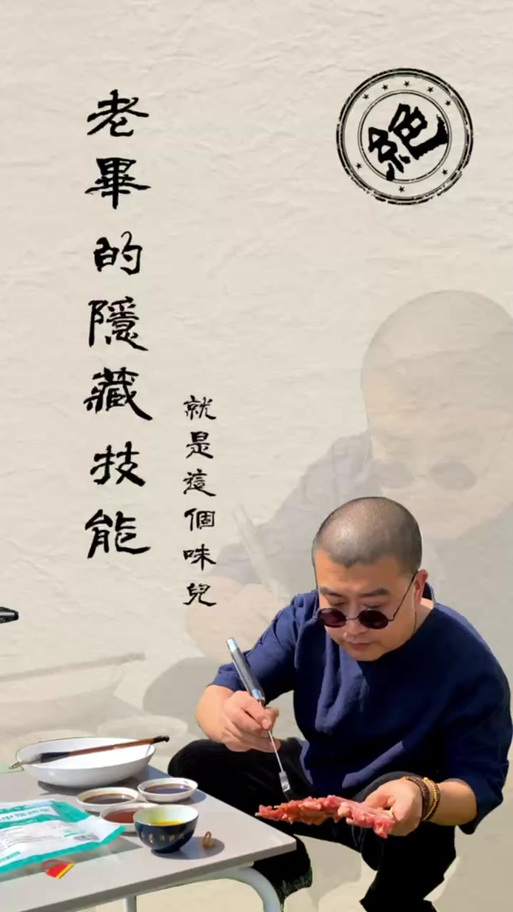 老畢的隱藏技能
就是這個味兒
絕